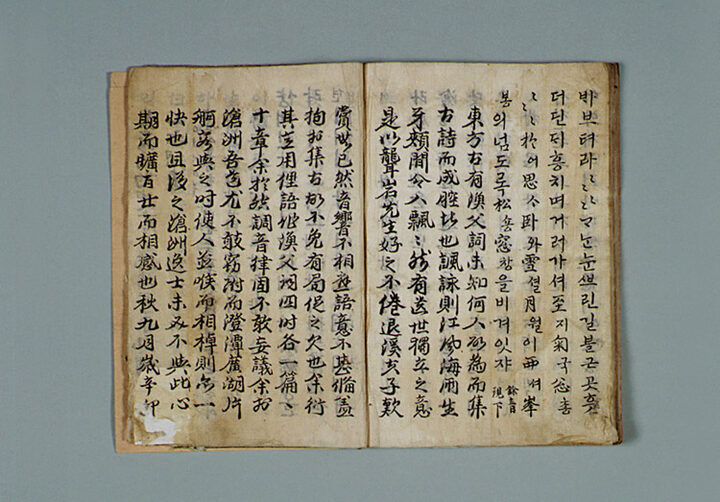 ᄇᆡ브텨라〻〻〻ᄀᆞᄂᆞᆫ눈ᄲᅳ린길블근곳흣
더딘ᄃᆡ흥치며거러가셔至지匊국悤총
〻〻於어思ᄉᆞ臥와雪셜月월이西셔峯
봉의넘도록松숑窓창을비겨잇쟈 餘音現下
東方古有漁父詞未知何人所為而集
古詩而成腔者也諷詠則江風海雨生
牙頰間令人飄〻然有遺世獨立之意
是以聾岩先生好之不倦退溪夫子歎
賞無已然音響不相應語意不甚備盖
拘於集古故不免有局促之欠也余衍
其意用俚語作漁父詞四時各一篇〻
十章余於腔調音律固不敢妄議余於
滄洲吾道尤不敢竊附而澄潭廣湖片
舸容與之時使人並喉而相棹則亦一
快也且後之滄洲逸士未必不與此心
期而曠百世而相感也秋九月歲辛卯